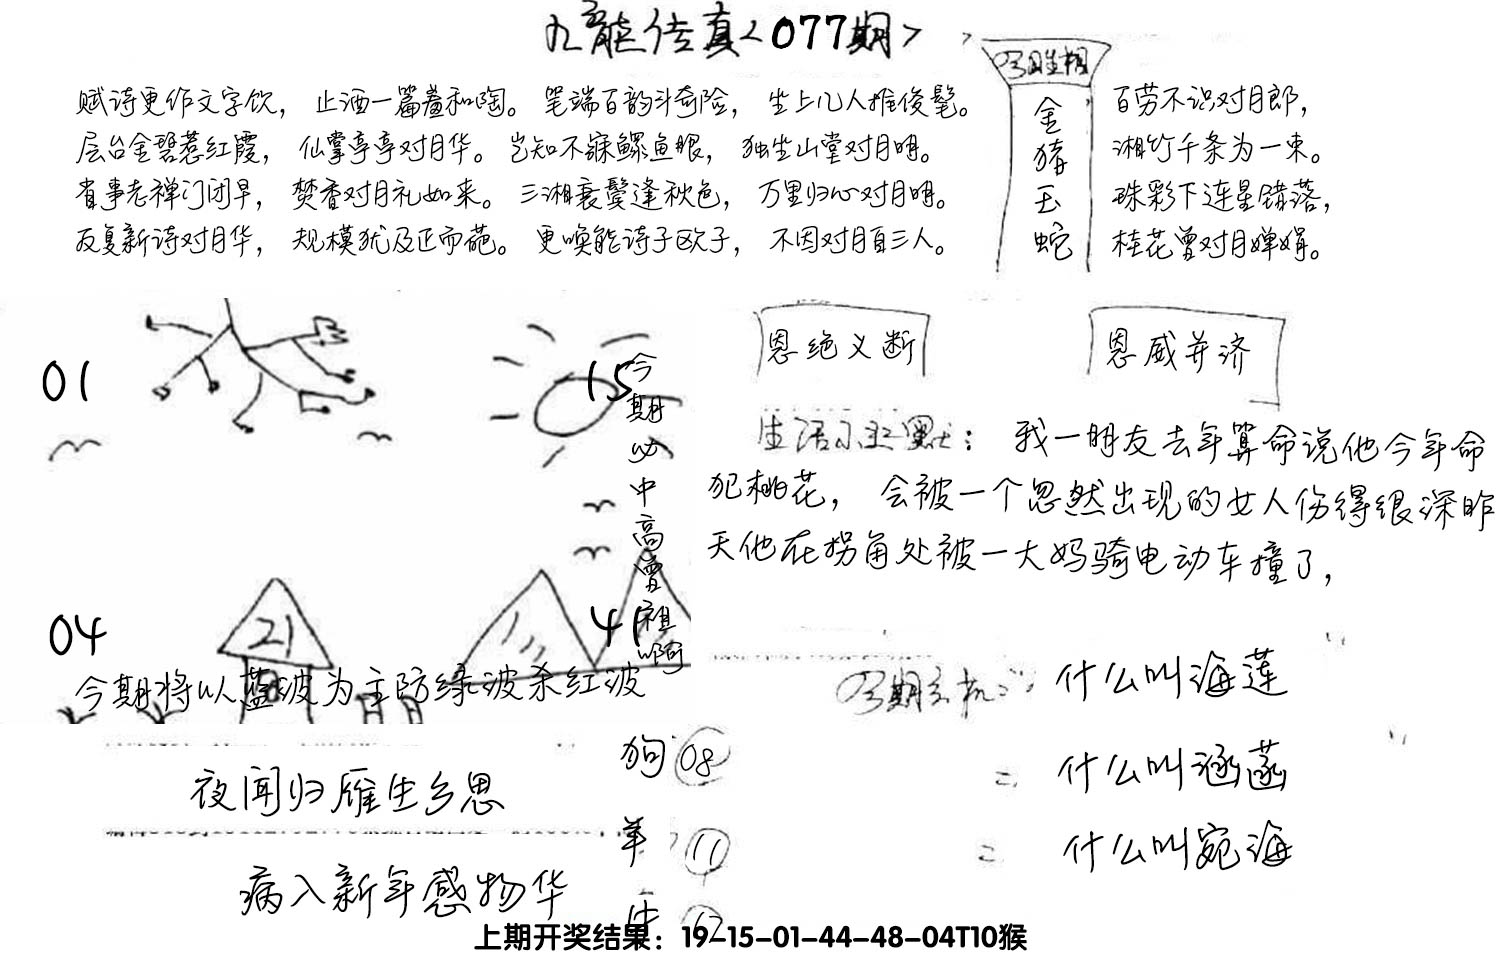 九龍传真<077期>
赋诗更作文字饮，止酒一篇羞和陶。笔端百韵斗奇险，坐上几人推俊髦。
层台金碧惹红霞，仙掌亭亭对月华。岂知不寐鳏鱼眼，独坐山堂对月明。
省事老禅门闭早，焚香对月礼如来。三湘衰鬓逢秋色，万里归心对月明。
反复新诗对月华，规模犹及正而葩。更唤能诗子欧子，不因对月自三人。
今日生相
金
猪
玉
蛇
百劳不识对月郎，
湘竹千条为一束。
珠彩下连星错落，
桂花曾对月婵娟。
01
15
今期必中高曾祖啊
04
21
41
今期将以蓝波为主防绿波杀红波
恩绝义断
恩威并济
生活小幽默：我一朋友去年算命说他今年命
犯桃花，会被一个忽然出现的女人伤得很深昨
天他在拐角处被一大妈骑电动车撞了，
今期玄机
什么叫海莲
什么叫涵菡
什么叫宛海
夜闻归雁生乡思
病入新年感物华
狗 08
羊 11
牛
上期开奖结果：19-15-01-44-48-04T10猴